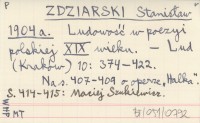 P
ZDZIARSKI Stanisław
1904a. Ludowość w poezji
polskiej XIX wieku. – Lud
(Kraków) 10: 374-422.
Na s. 407-409 o operze „Halka”.
S. 414-415: Maciej Szukiewicz.
MT